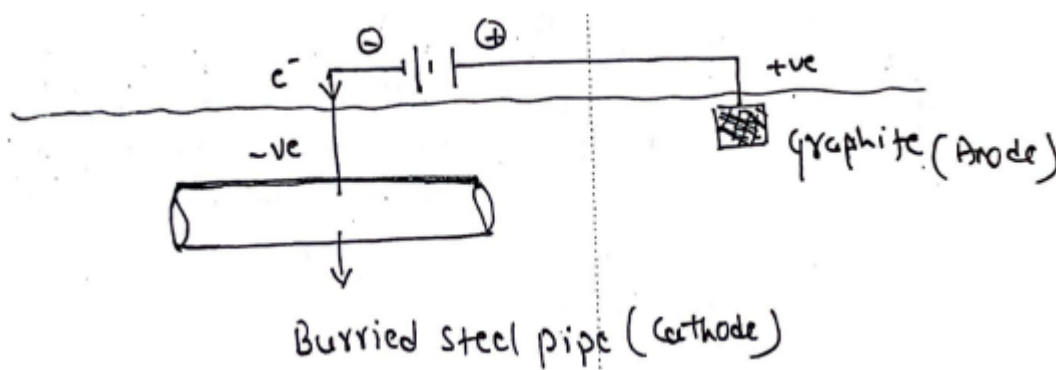 ⊖ ⊕
e⁻
+ve
-ve
graphite (Anode)
Burried steel pipe (Cathode)